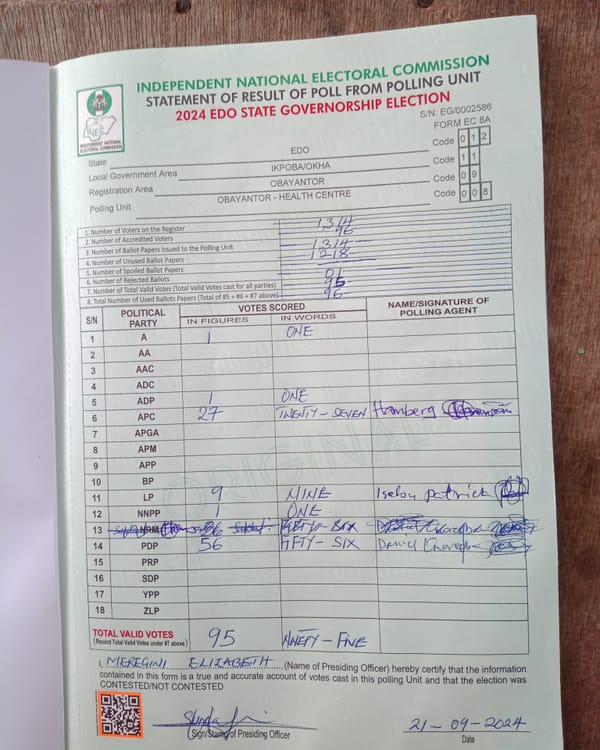 INDEPENDENT NATIONAL ELECTORAL COMMISSION
STATEMENT OF RESULT OF POLL FROM POLLING UNIT
2024 EDO STATE GOVERNORSHIP ELECTION
S/N: EG/0002586
FORM EC 8A
INEC
INDEPENDENT NATIONAL
ELECTORAL COMMISSION
State EDO Code 012
Local Government Area IKPOBA/OKHA Code 11
Registration Area OBAYANTOR Code 09
Polling Unit OBAYANTOR - HEALTH CENTRE Code 008
1. Number of Voters on the Register 1314
2. Number of Accredited Voters 96
3. Number of Ballot Papers Issued to the Polling Unit 1314
4. Number of Unused Ballot Papers 1218
5. Number of Spoiled Ballot Papers
6. Number of Rejected Ballots 01
7. Number of Total Valid Votes (Total Valid Votes cast for all parties) 95
8. Total Number of Used Ballots Papers (Total of #5 + #6 + #7 above) 96
S/N POLITICAL PARTY VOTES SCORED NAME/SIGNATURE OF POLLING AGENT
IN FIGURES IN WORDS
1 A 1 ONE
2 AA
3 AAC
4 ADC
5 ADP 1 ONE
6 APC 27 TWENTY-SEVEN Hamberg
7 APGA
8 APM
9 APP
10 BP
11 LP 9 NINE Patrick
12 NNPP 1 ONE
13 NRM 56 FIFTY-SIX
14 PDP 56 FIFTY-SIX Daniel
15 PRP
16 SDP
17 YPP
18 ZLP
ORIGINAL
TOTAL VALID VOTES 95 NINETY-FIVE
(Record Total Valid Votes under #7 above)
I, MEREGINI ELIZABETH (Name of Presiding Officer) hereby certify that the information
contained in this form is a true and accurate account of votes cast in this polling Unit and that the election was
CONTESTED/NOT CONTESTED
Sign/Stamp of Presiding Officer
21-09-2024
Date